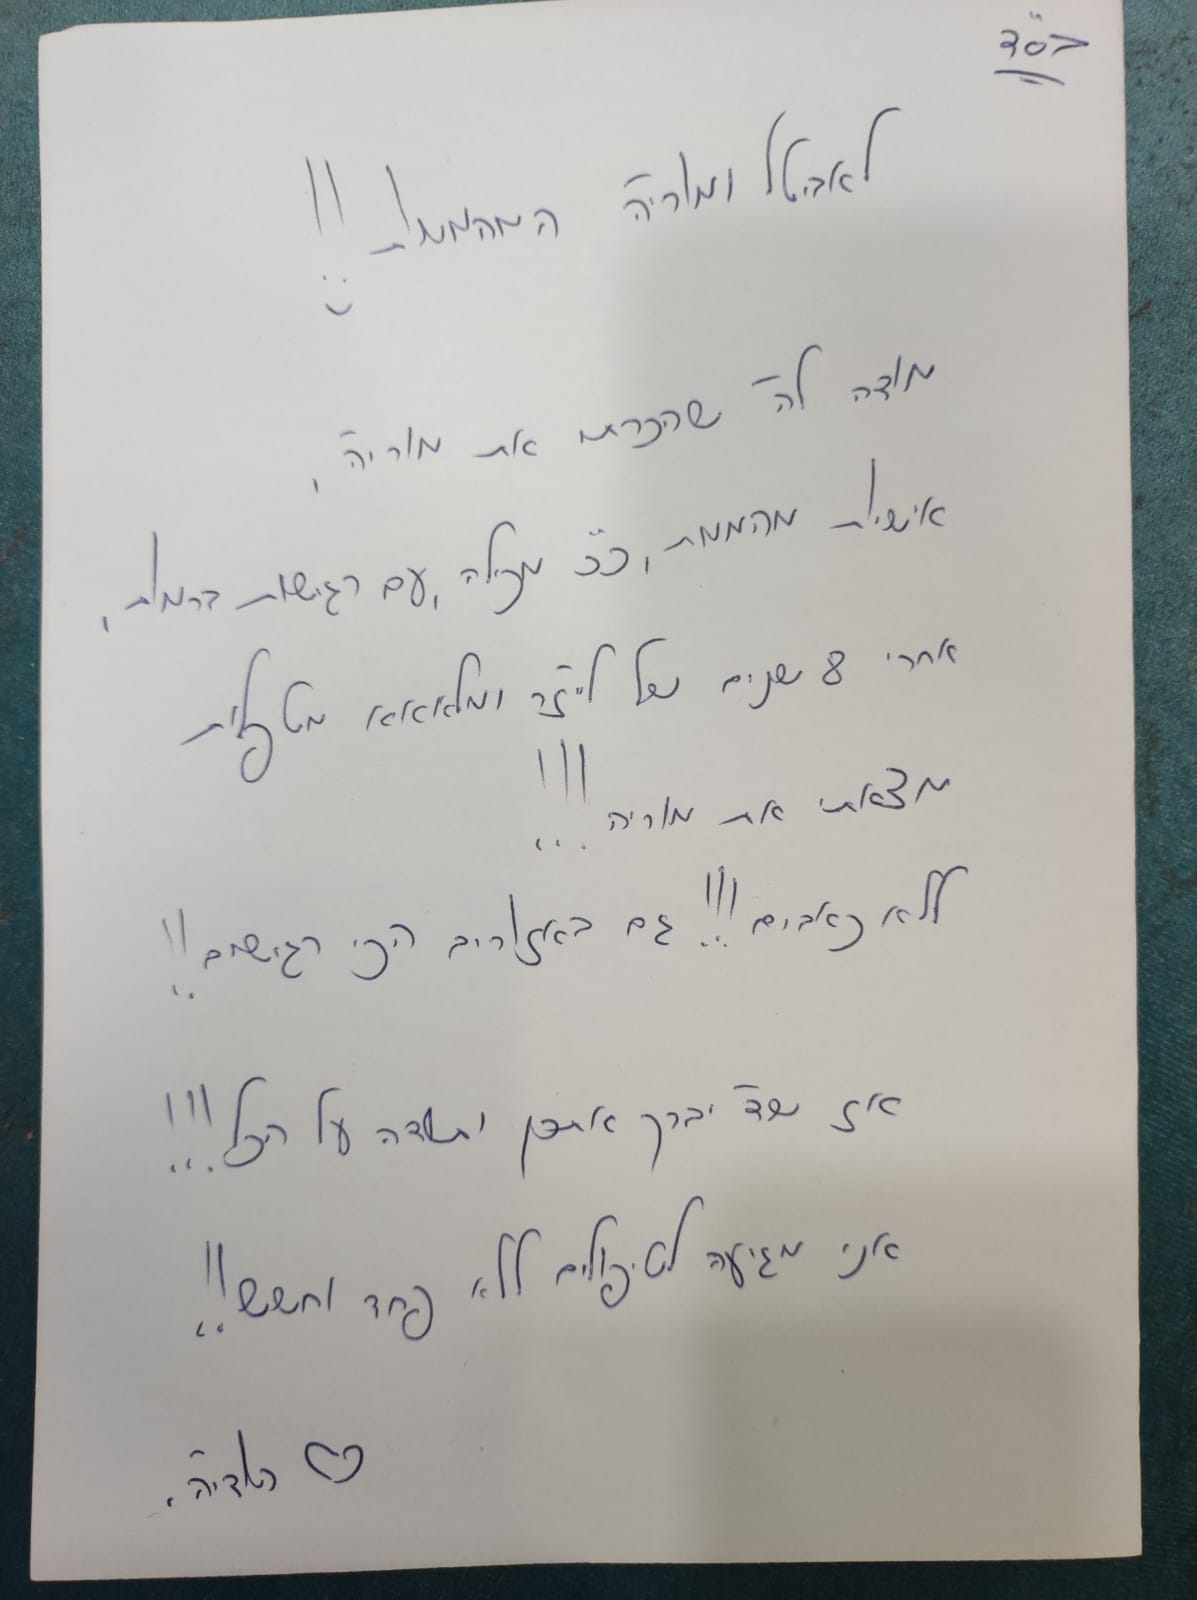 בס"ד
לאביטל ומוריה המהממות!!
מודה לה' שהכרתי את מוריה,
אישיות מהממת, כ"כ מכילה, עם רגישות ברמות,
אחרי 8 שנים של לייזר ומלאאאא מטפלות
מצאתי את מוריה!!!
ללא כאבים!!! גם באזורים הכי רגישים!!
אז שה' יברך אתכן ותודה על הכל!!!
אני מגיעה לטיפולים ללא פחד וחשש!!